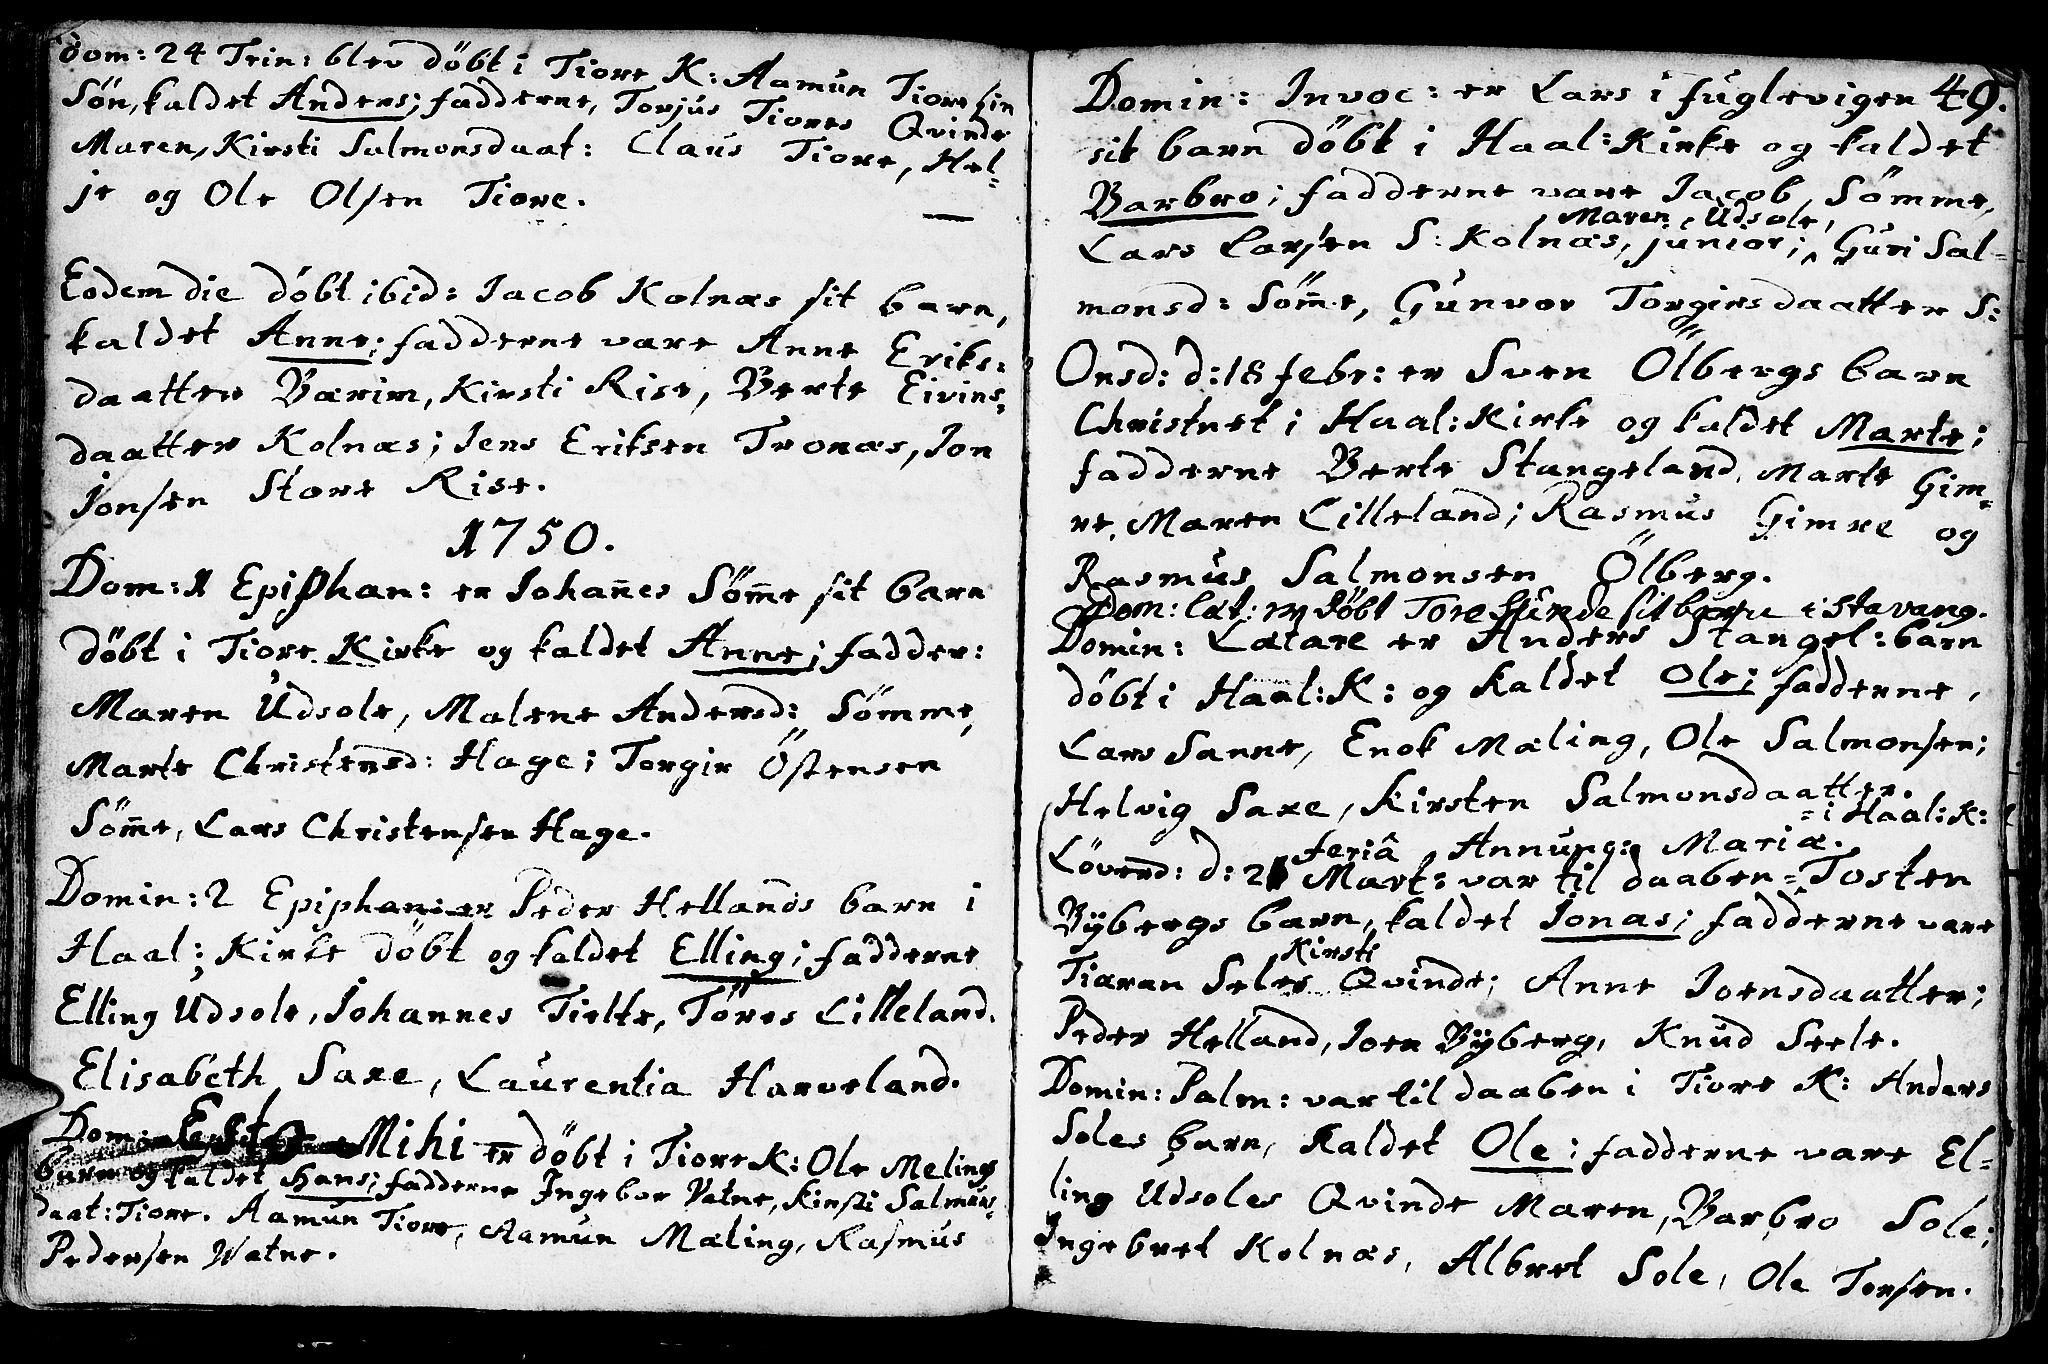 Dom: 24 Trin: blev döbt i Tiore K: Aamun Tiore sin
Søn, kaldet Anders; fadderne, Torjus Tiores Qvinde
Maren, Kirsti Salmonsdaat: Claus Tiore, Hel-
je og Ole Olsen Tiore.
Eodem die döbt ibid: Jacob Kolnæs sit barn,
kaldet Anne; fadderne vare Anne Eriks-
daatter Bærim, Kirsti Rise, Berte Eivins-
daatter Kolnæs; Jens Eriksen Tronæs, Jon
Jonsen Store Rise.
1750.
Dom: 1 Epiphan: er Johañes Söm̃e sit barn
döbt i Tiore Kirke og kaldet Anne; fadder:
Maren Udsole, Malene Andersd: Sömme,
Marte Christensd: Hage; Torgir Östensen
Söm̃e, Lars Christensen Hage.
Domin: 2 Epiphan: er Peder Hellands barn i
Haal: Kirke döbt og kaldet Elling; fadderne
Elling Udsole, Johannes Tielte, Töres Lilleland.
Elisabeth Saxe, Laurentia Harveland.
Dom: Esto Mihi er döbt i Tiore K: Ole Melings
barn og kaldet Hans; fadderne Ingebor Vatne, Kirsti Salmons-
daat: Tiore. Aamun Tiore, Aamun Mæling, Rasmus
Pedersen Watne.
49.
Domin: Invoc: er Lars i fuglevigen
sit barn döbt i Haal: Kirke og kaldet
Barbro; fadderne vare Jacob Sömme,
Maren Udsole,
Lars Larsen S: Kolnæs, junior; Guri Sal-
monsd: Söm̃e, Gunvor Torgirsdaatter S:
Onsd: d: 18 febr: er Sven Ölbergs barn
Christnet i Haal: Kirke og kaldet Marte;
fadderne Berte Stangeland, Marte Gim-
re, Maren Lilleland; Rasmus Gimre og
Rasmus Salmonsen Ölberg.
Dom: læt: er döbt Tore Sunde sit barn i Stavang.
Domin: Lætare er Anders Stangel: barn
döbt i Haal: K: og kaldet Ole; fadderne,
Lars Sanne, Enok Mæling, Ole Salmonsen;
Helvig Saxe, Kirsten Salmonsdaatter.
i Haal: K:
feriâ Annung: Mariæ.
Löverd: d: 21 Mart: var til daaben Tosten
Bÿbergs barn, kaldet Jonas; fadderne vare
Kirsti
Tiaran Seles Qvinde; Anne Joensdaatter;
Peder Helland, Joen Bÿberg, Knud Seele.
Domin: Palm: var til daaben i Tiore K: Anders
Soles barn, Kaldet Ole; fadderne vare El-
ling Udsoles Qvinde Maren, Barbro Sole;
Ingebret Kolnæs, Albret Sole, Ole Torsen.